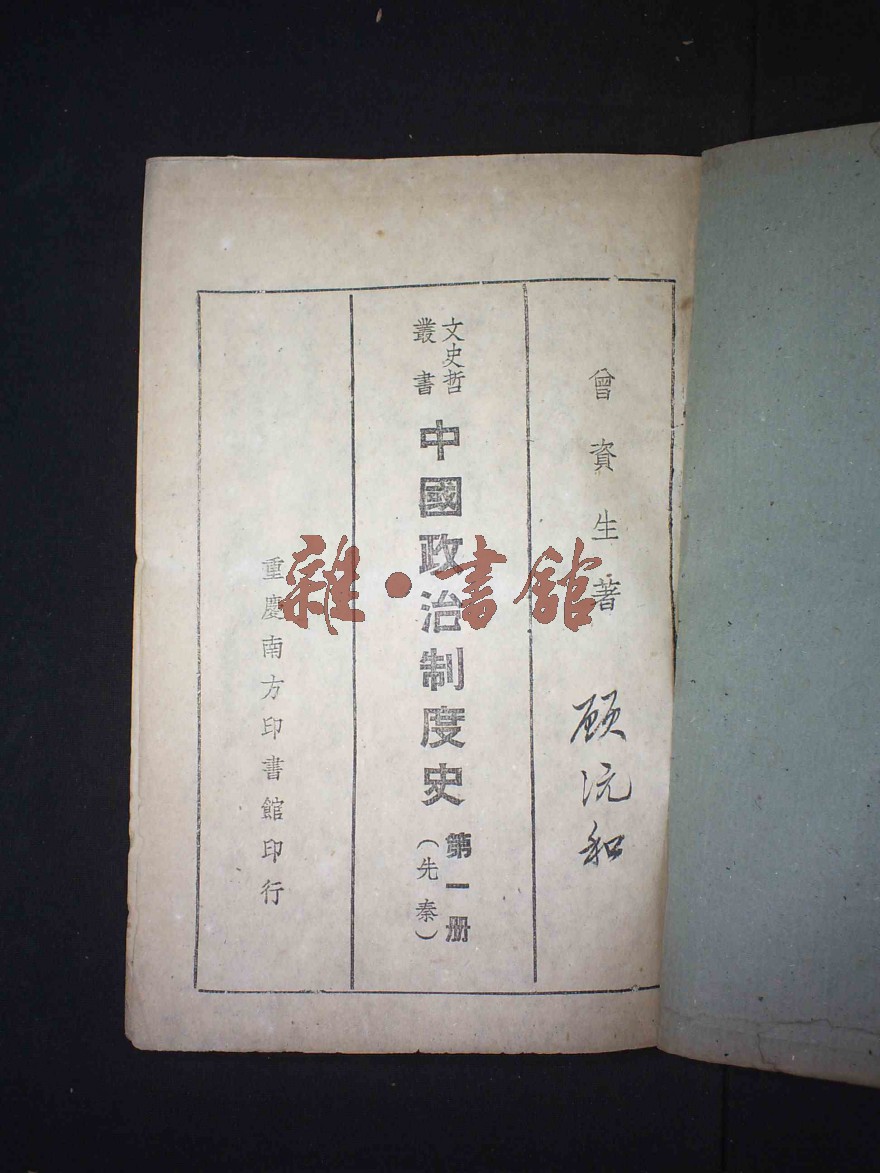 曾資生著
顾沅和
文史哲
叢書
中國政治制度史
第一册
(先秦)
重慶南方印書館印行
雜·書館